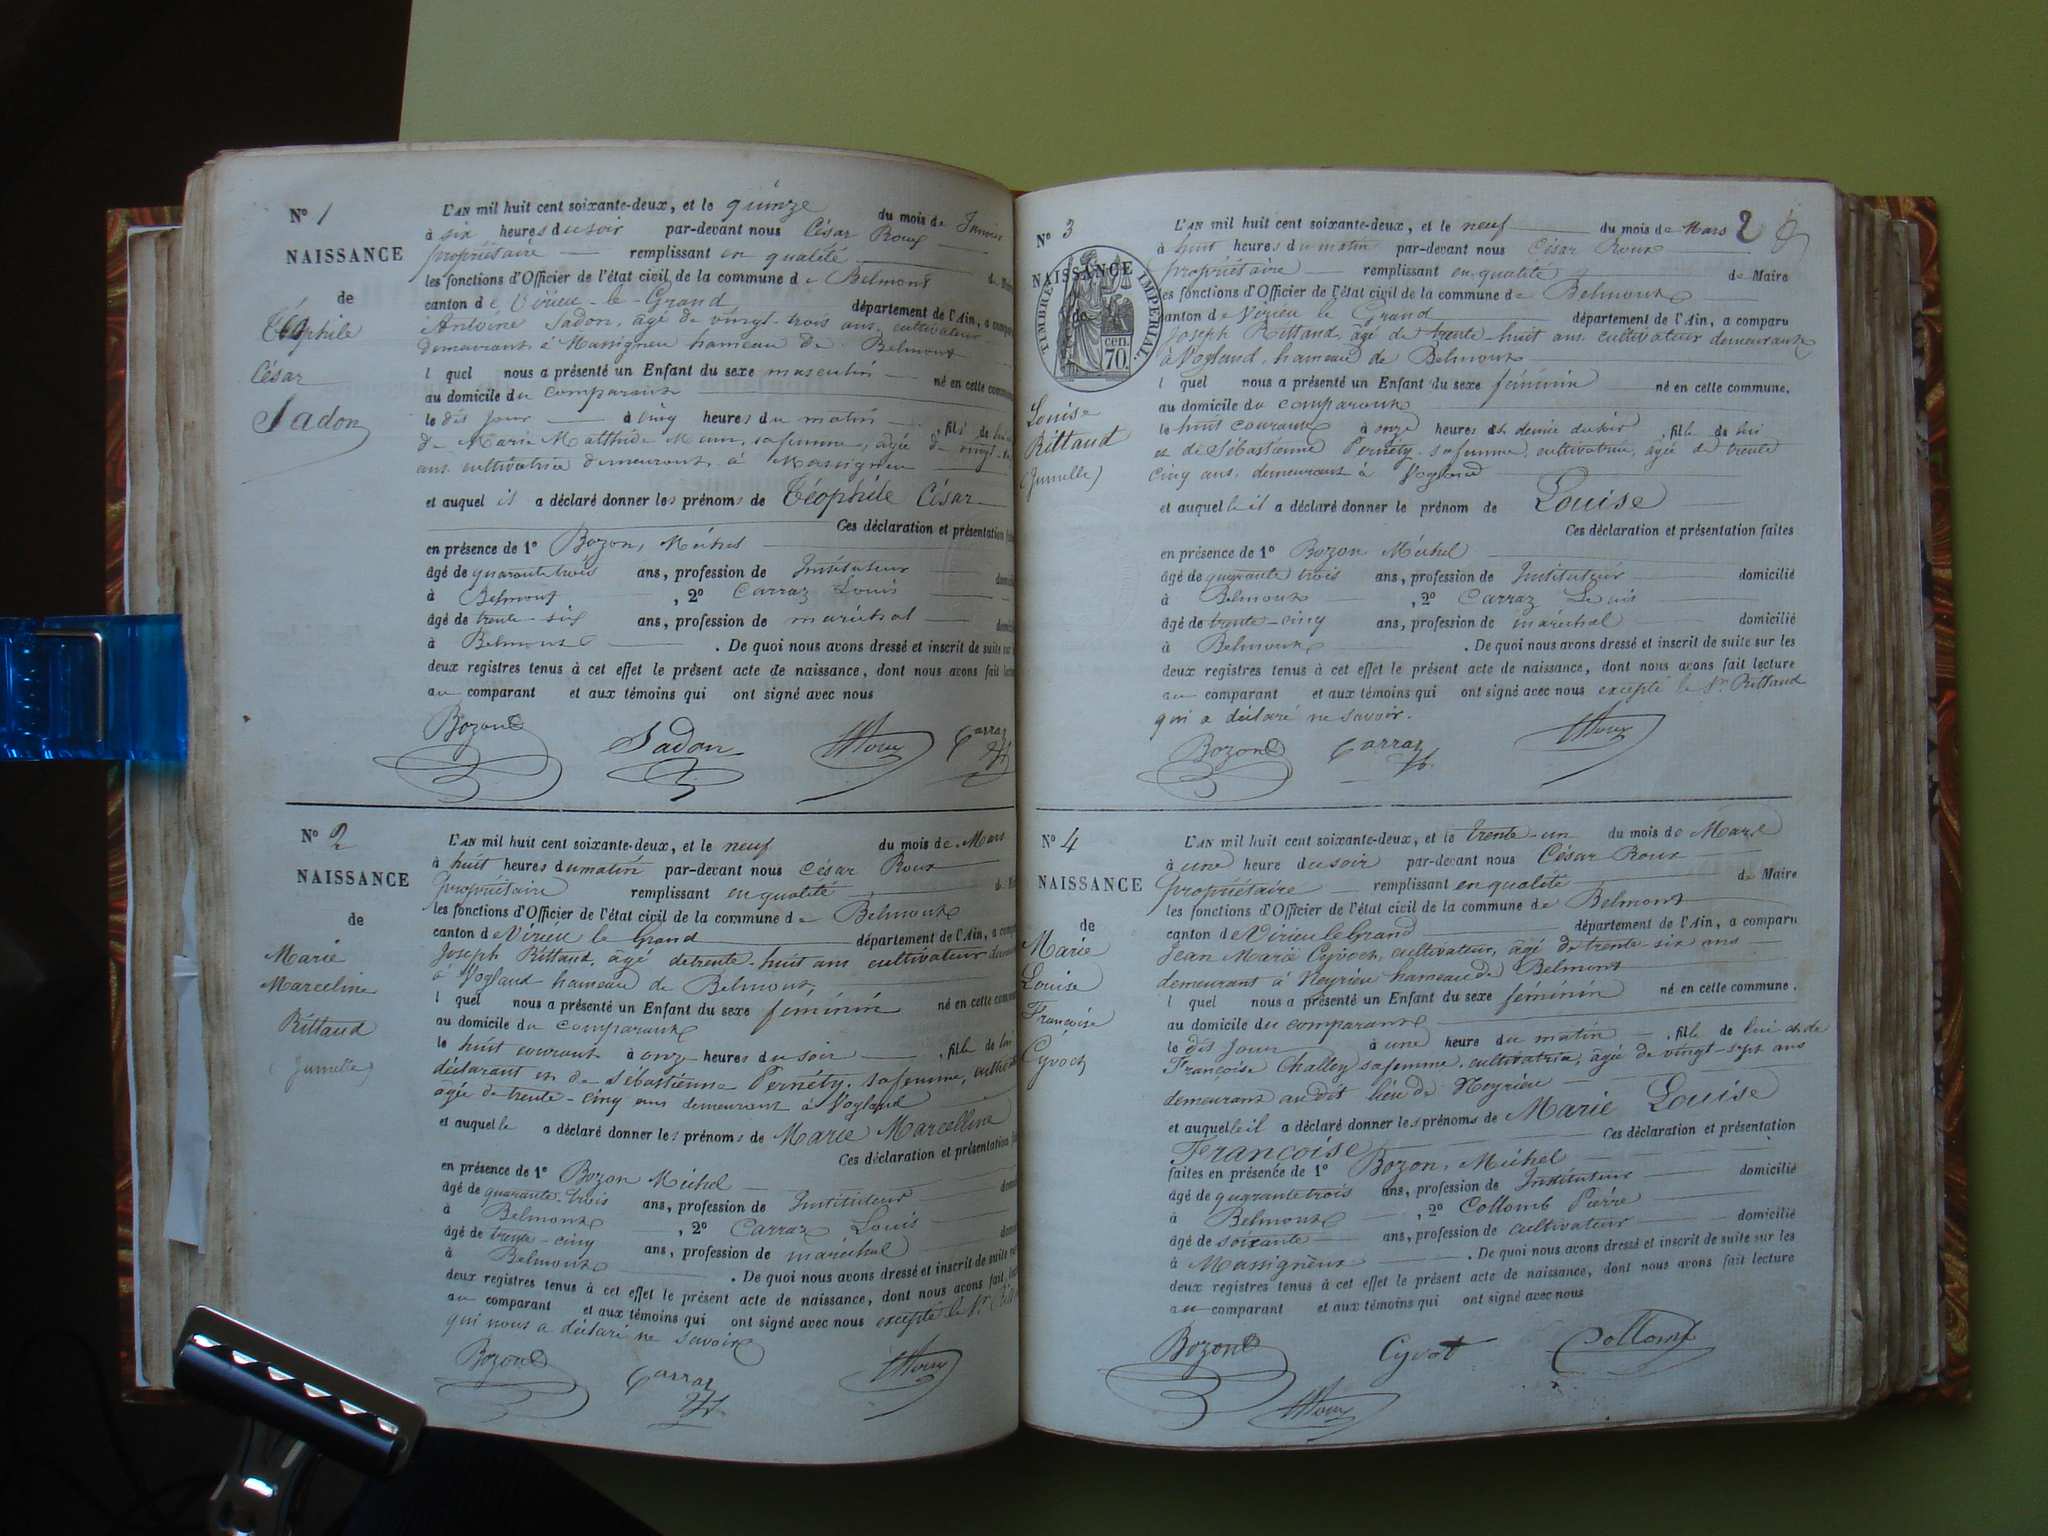 N° 1
NAISSANCE
de
Téophile
César
Sadon
L'AN mil huit cent soixante-deux, et le quinze du mois de Janvier
à six heures du soir par-devant nous César Roux
propriétaire remplissant en qualité de
les fonctions d'Officier de l'état civil de la commune de Belmont
canton de Virieu-le-Grand département de l'Ain, a comparu
Antoine Sadon, âgé de vingt-trois ans, cultivateur
demeurant à Massigneu hameau de Belmont
l quel nous a présenté un Enfant du sexe masculin né en cette commune
au domicile du comparant
le dis jour à cinq heures du matin, fils de lui
de Marie Matthide sa femme, âgée de vingt
ans cultivatrice demeurant à Massigneu
et auquel il a déclaré donner les prénoms de Téophile César
Ces déclaration et présentation
en présence de 1° Bozon, Michel
âgé de quarante trois ans, profession de Instituteur
à Belmont, 2° Carraz Louis
âgé de trente-six ans, profession de maréchal
à Belmont. De quoi nous avons dressé et inscrit de suite sur
deux registres tenus à cet effet le présent acte de naissance, dont nous avons fait
au comparant et aux témoins qui ont signé avec nous
Bozon Sadon Roux Carraz
N° 2
NAISSANCE
de
Marie
Marceline
Rittaud
(Jumelle)
L'AN mil huit cent soixante-deux, et le neuf du mois de Mars
à huit heures du matin par-devant nous César Roux
propriétaire remplissant en qualité de
les fonctions d'Officier de l'état civil de la commune de Belmont
canton de Virieu le Grand département de l'Ain, a
Joseph Rittaud, âgé de trente-huit ans cultivateur
à Vogland hameau de Belmont,
l quel nous a présenté un Enfant du sexe féminin né en cette
au domicile du comparant
le huit courant à onze heures du soir, fille de lui
déclarant et de Sébastienne Pernéty, sa femme,
âgée de trente-cinq ans demeurant à Vogland
et auquel le a déclaré donner les prénoms de Marie Marcelline
Ces déclaration et présentation
en présence de 1° Bozon Michel
âgé de quarante-trois ans, profession de Instituteur
à Belmont, 2° Carraz Louis
âgé de trente-cinq ans, profession de maréchal
à Belmont. De quoi nous avons dressé et inscrit de suite
deux registres tenus à cet effet le présent acte de naissance, dont nous avons fait
au comparant et aux témoins qui ont signé avec nous excepté le Sr
qui nous a déclaré ne savoir
Bozon Carraz Roux
2
N° 3
NAISSANCE
de
TIMBRE IMPERIAL
70 cen.
Louise
Rittaud
(Jumelle)
L'AN mil huit cent soixante-deux, et le neuf du mois de Mars
à huit heures du matin par-devant nous César Roux
propriétaire remplissant en qualité de Maire
les fonctions d'Officier de l'état civil de la commune de Belmont
canton de Virieu le Grand département de l'Ain, a comparu
Joseph Rittaud, âgé de trente-huit ans cultivateur demeurant
à Vogland, hameau de Belmont
l quel nous a présenté un Enfant du sexe féminin né en cette commune.
au domicile du comparant
le huit courant à onze heures et demie du soir, fille de lui
et de Sébastienne Pernéty, sa femme, cultivatrice, âgée de trente
cinq ans, demeurant à Vogland
et auquel le il a déclaré donner le prénom de Louise
Ces déclaration et présentation faites
en présence de 1° Bozon Michel
âgé de quarante trois ans, profession de Instituteur domicilié
à Belmont, 2° Carraz Louis
âgé de trente-cinq ans, profession de maréchal domicilié
à Belmont. De quoi nous avons dressé et inscrit de suite sur les
deux registres tenus à cet effet le présent acte de naissance, dont nous avons fait lecture
au comparant et aux témoins qui ont signé avec nous excepté le Sr Rittaud
qui a déclaré ne savoir.
Bozon Carraz Roux
N° 4
NAISSANCE
de
Marie
Louise
Françoise
Cyvoct
L'AN mil huit cent soixante-deux, et le trente-un du mois de Mars
à une heure du soir par-devant nous César Roux
propriétaire remplissant en qualité de Maire
les fonctions d'Officier de l'état civil de la commune de Belmont
canton de Virieu le Grand département de l'Ain, a comparu
Jean Marie Cyvoct, cultivateur, âgé de trente-six ans
demeurant à Neyrieu hameau de Belmont
l quel nous a présenté un Enfant du sexe féminin né en cette commune.
au domicile du comparant
le dis jour à une heure du matin, fille de lui et de
Françoise Challey sa femme, cultivatrice, âgée de vingt-sept ans
demeurant au dit lieu de Neyrieu
et auquel le il a déclaré donner les prénoms de Marie Louise
Françoise Ces déclaration et présentation
faites en présence de 1° Bozon, Michel
âgé de quarante trois ans, profession de Instituteur domicilié
à Belmont, 2° Collomb Pierre
âgé de soixante ans, profession de cultivateur domicilié
à Massignieu. De quoi nous avons dressé et inscrit de suite sur les
deux registres tenus à cet effet le présent acte de naissance, dont nous avons fait lecture
au comparant et aux témoins qui ont signé avec nous
Bozon Cyvot Collomb
Roux